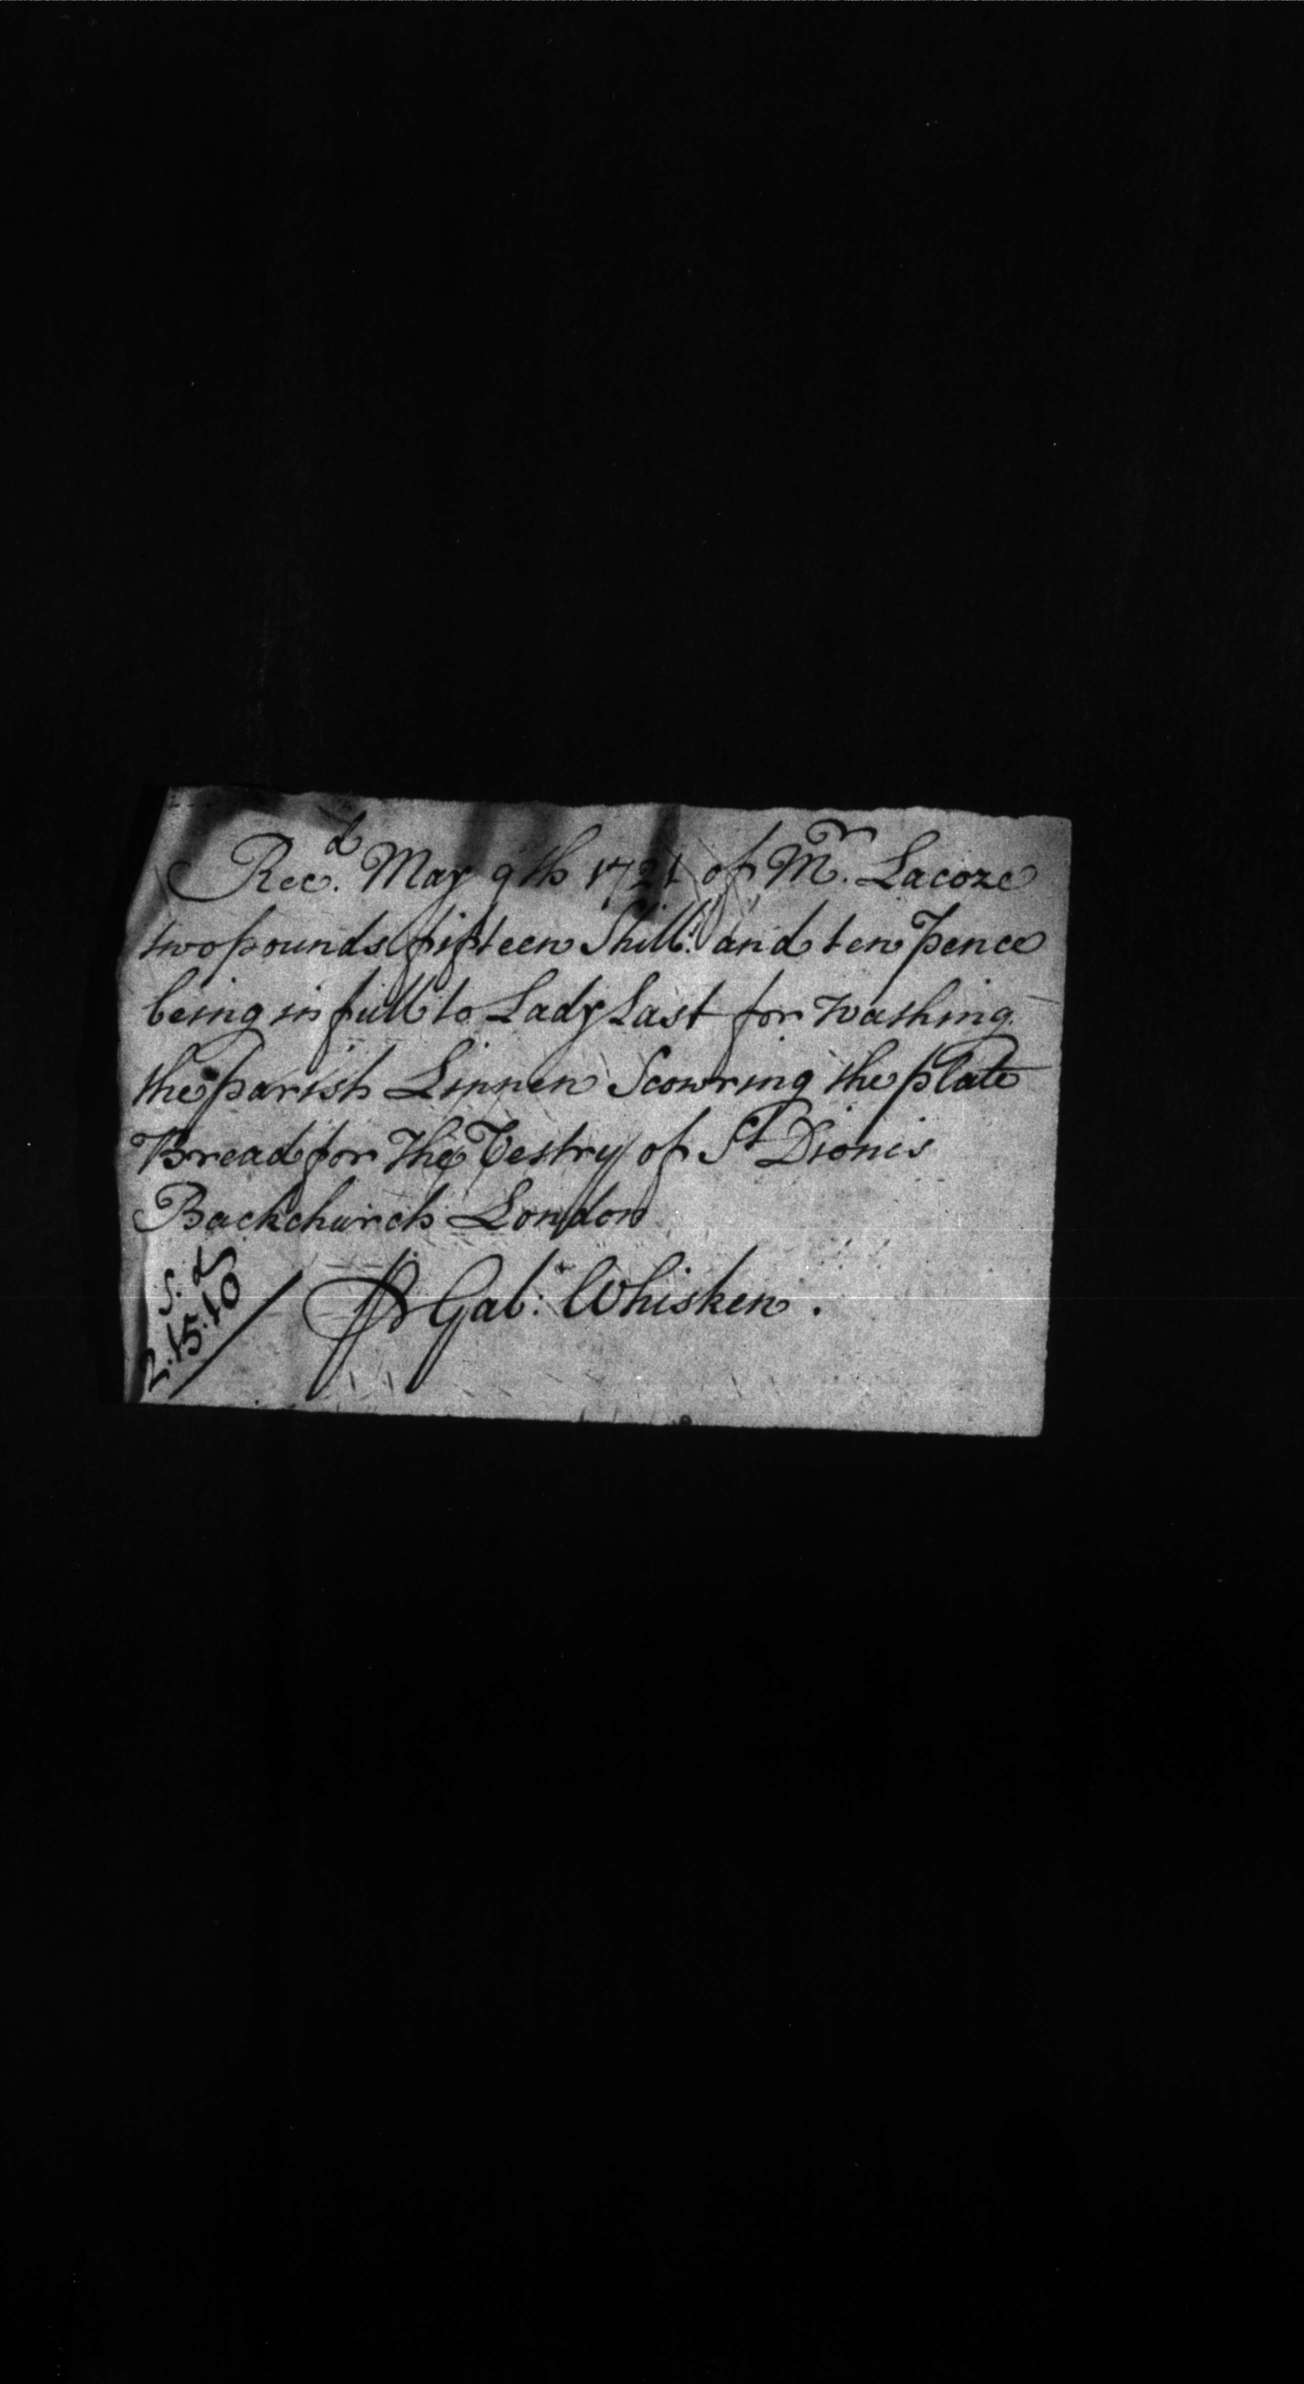 Recd. May 9th 1721 of Mr. Lacoze
two pounds fifteen Shills. and ten pence
being in full to Lady Last for washing
the parish Linnen Scowring the plate
Bread for The Vestry of St Dionis
Backchurch London
S. d
2.15.10
Gab: Whisken.